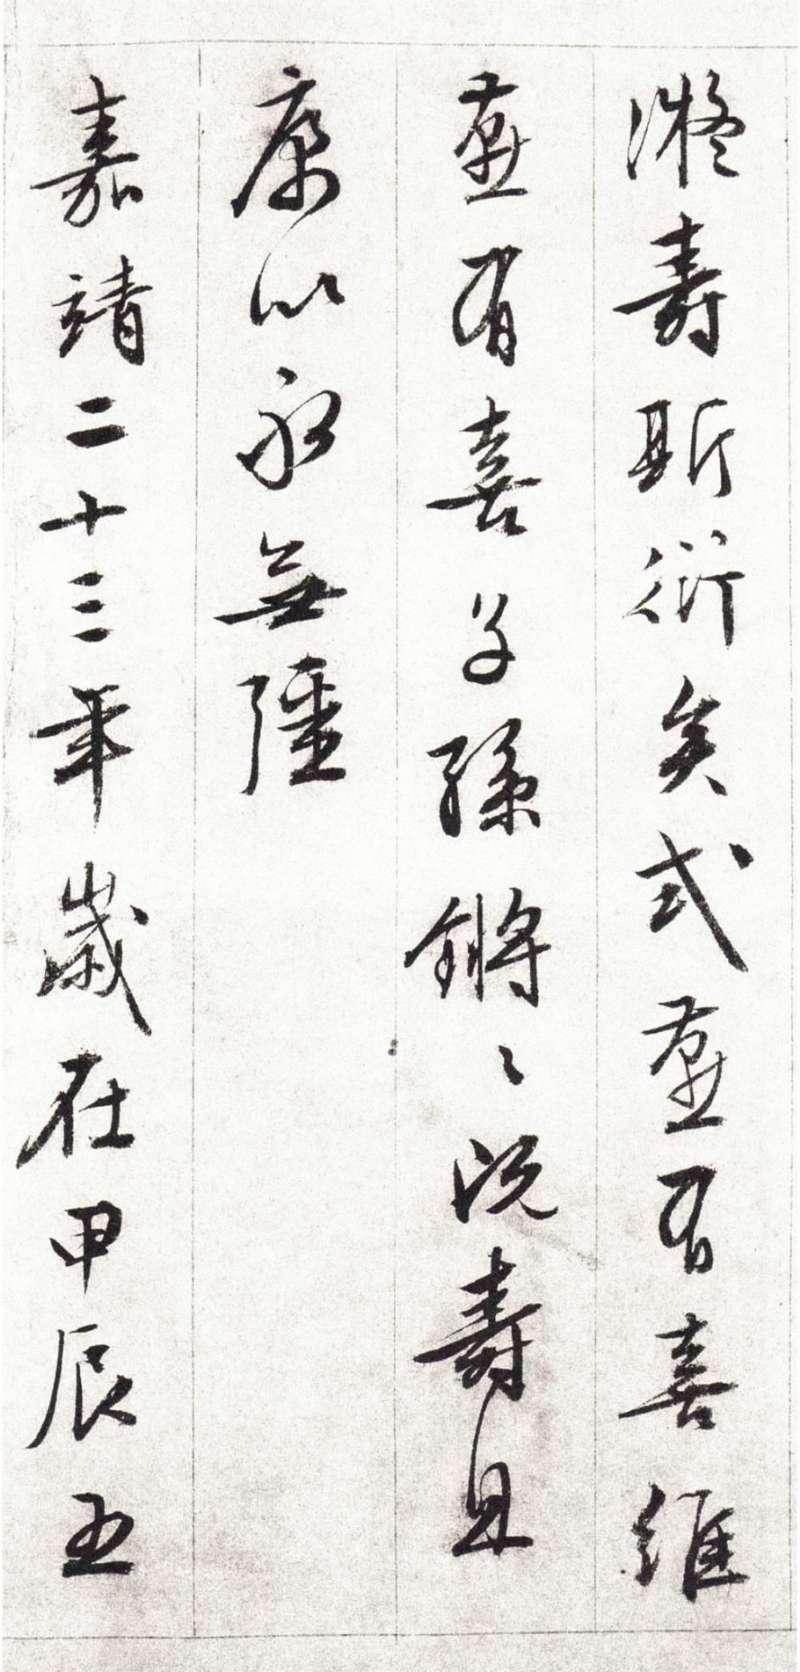 凝壽斯衍矣式燕有喜維
燕有喜子孫鏘々既壽且
康以永無疆
嘉靖二十三年歲在甲辰五